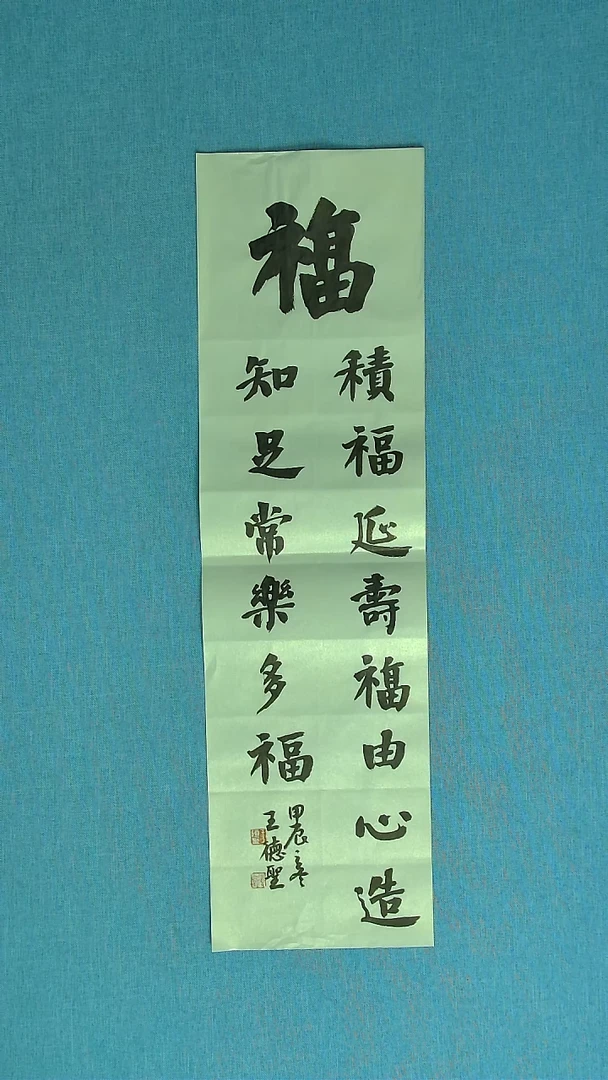 福
積福延壽福由心造
知足常樂多福
甲辰之冬
王德聖